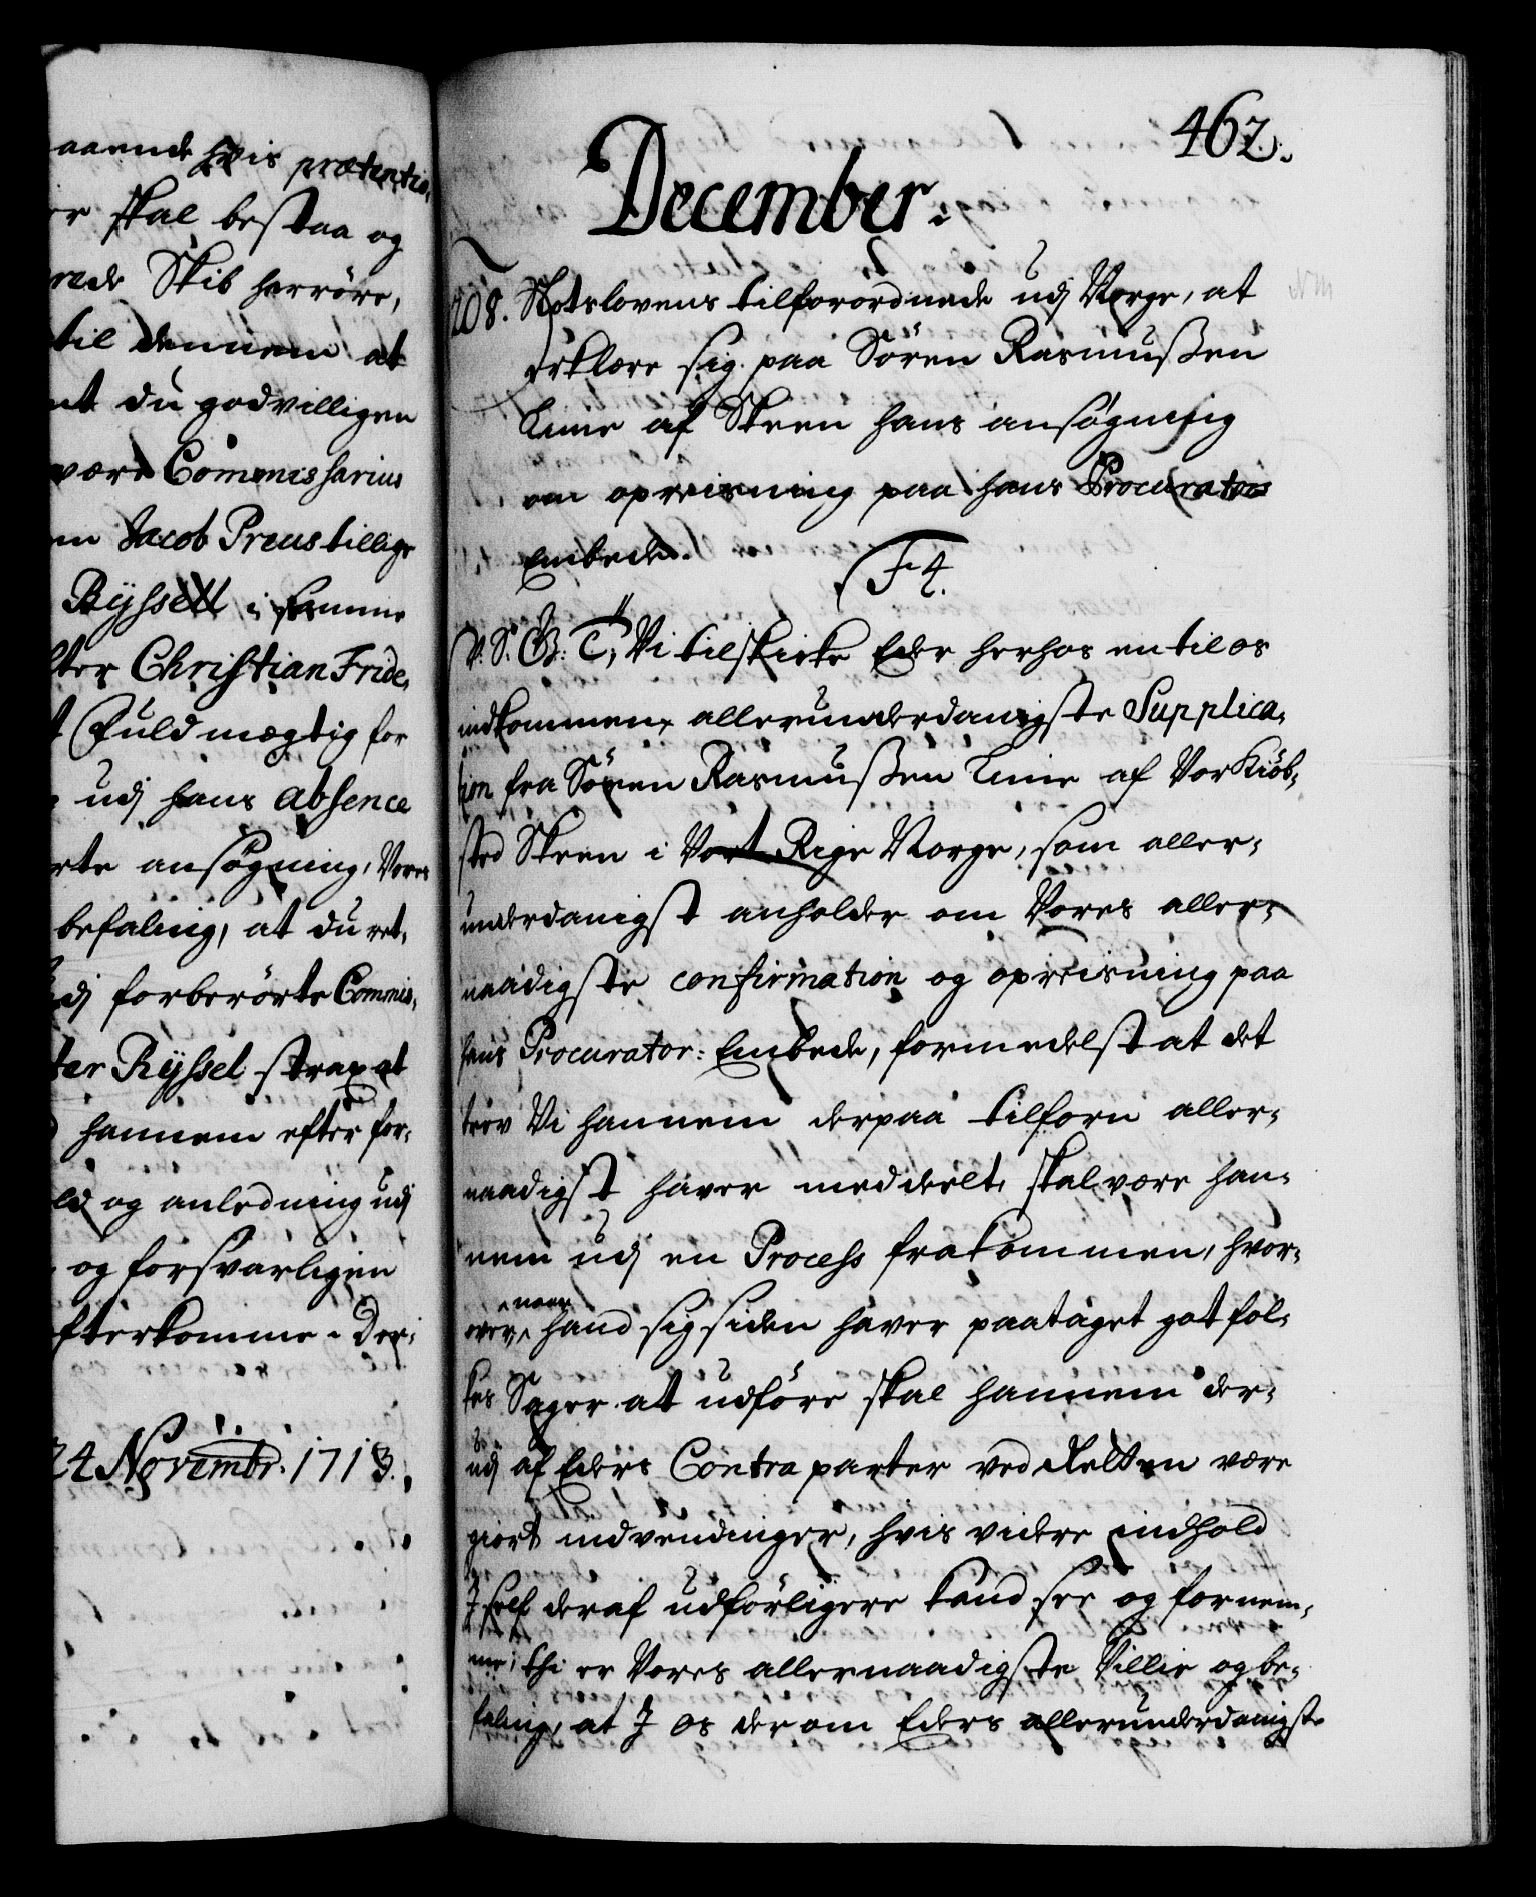 aaende hvis prætentio,
er skal bestaa og
rede Skib herröre,
til dennem at
nt du godvilligen
være Commissarius
en Jacob Preus tillige
Ryssell i samme
ter Christian Fride,
t Fuldmægtig for
udj hans absence
rte ansøgning, Vores
befaling, at du ret,
dj forberörte Commis,
ter Ryssel strax at
hannem efter for,
ld og anledning udj
og forsvarligen
fterkomme. Der,
24 Novembr. 1713.
462.
December.
208. Slotslovens tilforordnede udj Norge, at
erklære sig paa Sören Rasmußen
Linie af Skeen hans ansøgning
om opreisning paa hans Procurators
Embede.
F 4.
V. S. G. B. T., Vi tilskicke Eder herhos en til os
indkommen allerunderdanigste Supplica,
tion fra Sören Rasmußen Linie af Vor Kiöb,
sted Skeen i Vort Rige Norge, som aller,
underdanigst anholder om Vores aller,
naadigste confirmation og opreisning paa
hans Procurator: Embede, formedelst at det
brev Vi hannem derpaa tilforn aller,
naadigst haver meddeelt, skal være han,
nem udj en Process frakommen, hvor,
over naar hand sig siden haver paataget got fol,
kes Sager at udföre skal hannem der,
udj af Eders Contra parter ved Retten være
giort indvendinger, hvis videre indhold
I self deraf udförligere kand see og fornem,
me; thi er Vores allernaadigste Villie og be,
faling, at I os derom Eders allerunderdanigste